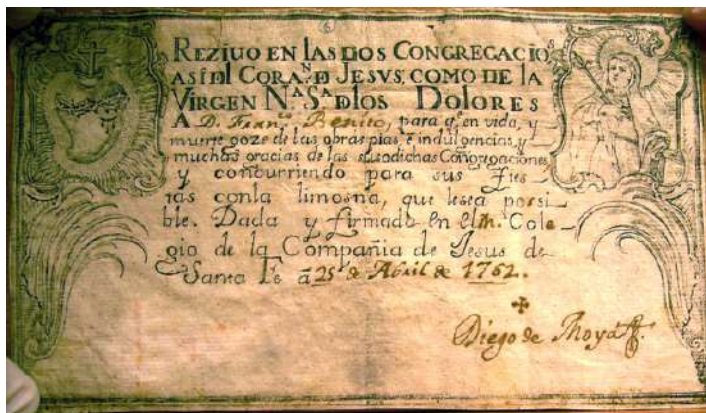 REZIUO EN LAS DOS CONGREGACIOS
ASI DL CORAN. D JESVS, COMO DE LA
VIRGEN NA. SA. D LOS DOLORES
A D. Franco. Benito, para q. en vida, y
muerte goze de las obras pias, è indulgencias, y
muchas gracias de las susodichas Congregaciones
y concurriendo para sus Fies
tas con la limosna, que lesea possi
ble. Dada y firmada en el Cole
gio de la Compañia de Jesus de
Santa Fè à 25 de Abril de 1762.
Diego de Moya